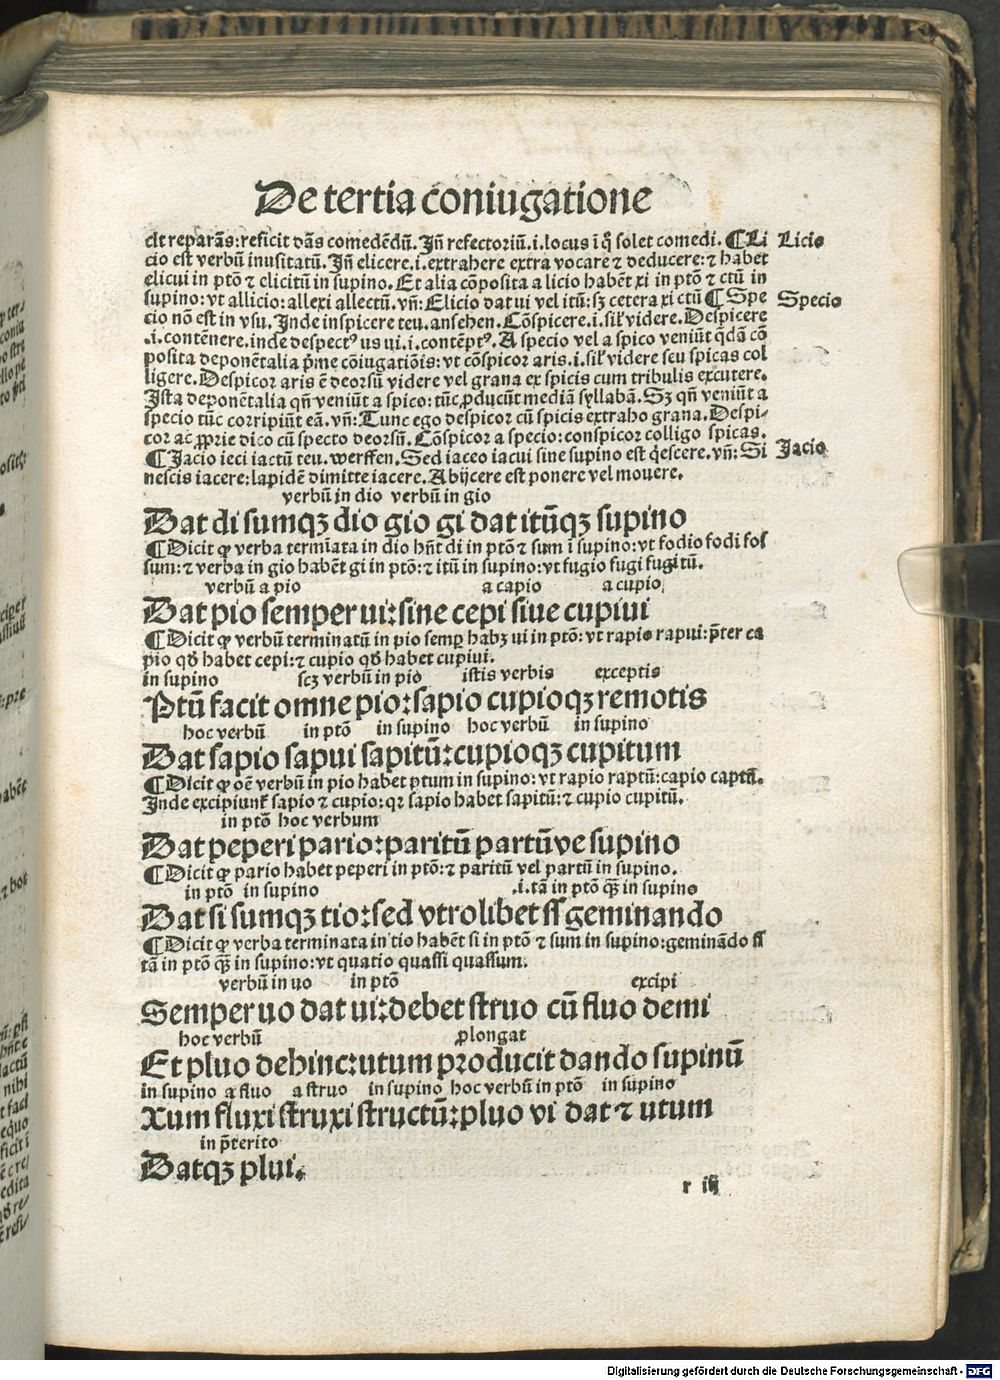 De tertia cōiugatione
cit reparās: reficit dās comedēdū. Jn̄ refectoriū .i. locus ī q̊ solet comedi. ¶ Li Licio
cio est verbū inusitatū. Jn̄ elicere .i. extrahere extra vocare ⁊ deducere: ⁊ habet
elicui in ptō ⁊ elicitū in supino. Et alia cōposita a licio habēt xi in ptō ⁊ ctū in
supino: vt allicio: allexi allectū. vn̄: Elicio dat ui vel itū: sꝫ cetera xi ctū ¶ Spe Specio
cio nō est in vsu. Jnde inspicere teu. ansehen. Cōspicere .i. sil̄ videre. Despicere
.i. contēnere. inde despectꝰ us ui .i. contēptꝰ. A specio vel a spico veniūt q̄dā cō
posita deponētalia p̄me cōiugatiōis: vt cōspicor aris .i. sil̄ videre seu spicas col
ligere. Despicor aris ē deorsū videre vel grana ex spicis cum tribulis excutere.
Jsta deponētalia qn̄ veniūt a spico: tūc ꝓducūt mediā syllabā. Sꝫ qn̄ veniūt a
specio tūc corripiūt eā. vn̄: Tunc ego despicor cū spicis extraho grana. Despi-
cor ac ꝓprie dico cū specto deorsū. Cōspicor a specio: conspicor colligo spicas.
¶ Jacio ieci iactū teu. werffen. Sed iaceo iacui sine supino est q̇escere. vn̄: Si Jacio
nescis iacere: lapidē dimitte iacere. Abijcere est ponere vel mouere.
verbū in dio verbū in gio
Dat di sumqꝫ dio gio gi dat itūqꝫ supino
¶ Dicit ꝙ verba termīata in dio hn̄t di in ptō ⁊ sum ī supino: vt fodio fodi fos
sum: ⁊ verba in gio habēt gi in ptō: ⁊ itū in supino: vt fugio fugi fugitū.
verbū a pio a capio a cupio
Dat pio semper ui: sine cepi siue cupiui
¶ Dicit ꝙ verbū terminatū in pio semꝑ habꝫ ui in ptō: vt rapio rapui: p̄ter ca
pio qd̄ habet cepi: ⁊ cupio qd̄ habet cupiui.
in supino scꝫ verbū in pio istis verbis exceptis
Ptū facit omne pio: sapio cupioqꝫ remotis
hoc verbū in ptō in supino hoc verbū in supino
Dat sapio sapui sapitū: cupioqꝫ cupitum
¶ Dicit ꝙ oē verbū in pio habet ptum in supino: vt rapio raptū: capio captū.
Jnde excipiunt̄ sapio ⁊ cupio: qꝛ sapio habet sapitū: ⁊ cupio cupitū.
in ptō hoc verbum
Dat peperi pario: paritū partūve supino
¶ Dicit ꝙ pario habet peperi in ptō: ⁊ paritū vel partū in supino.
in ptō in supino .i. tā in ptō q̄ꝫ in supino
Dat si sumqꝫ tio: sed vtrolibet ss geminando
¶ Dicit ꝙ verba terminata in tio habēt si in ptō ⁊ sum in supino: geminādo ss
tā in ptō q̄ꝫ in supino: vt quatio quassi quassum.
verbū in uo in ptō excipi
Semper uo dat ui: debet struo cū fluo demi
hoc verbū ꝓlongat
Et pluo dehinc: utum producit dando supinū
in supino a fluo a struo in supino hoc verbū in ptō in supino
Xum fluxi struxi structū: pluo vi dat ⁊ utum
in p̄terito
Datqꝫ plui.
r iij
Digitalisierung gefördert durch die Deutsche Forschungsgemeinschaft - DFG